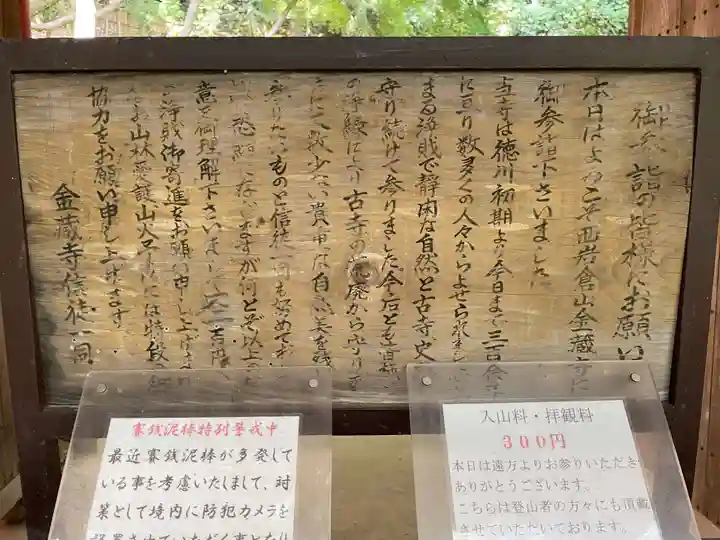 御参詣の皆様にお願い
本日はようこそ西岩倉山金蔵寺に
御参詣下さいました
当寺は徳川初期より今日まで三百余年
に亘り数多くの人々からよせられ
まる浄財で静閑な自然と古寺、史
守り続けて参りました今后とも皆様
の浄縁により古寺の荒廃から守り
にて残少ない貴重な自然美を残し
参りたいものと信徒一同も努めて
恐縮でございますが何とぞ以上の
意を御理解下さいまして
浄財御寄進をお願い申し上げます
なお山林愛護山火には特段の御
協力をお願い申し上げます
金蔵寺信徒一同
賽銭泥棒特別警戒中
最近賽銭泥棒が多発して
いる事を考慮いたしまして、対
策として境内に防犯カメラを
設置させていただく事となり
入山料・拝観料
300円
本日は遠方よりお参りいただき
ありがとうございます。
こちらは登山者の方々にも頂戴
させていただいております。